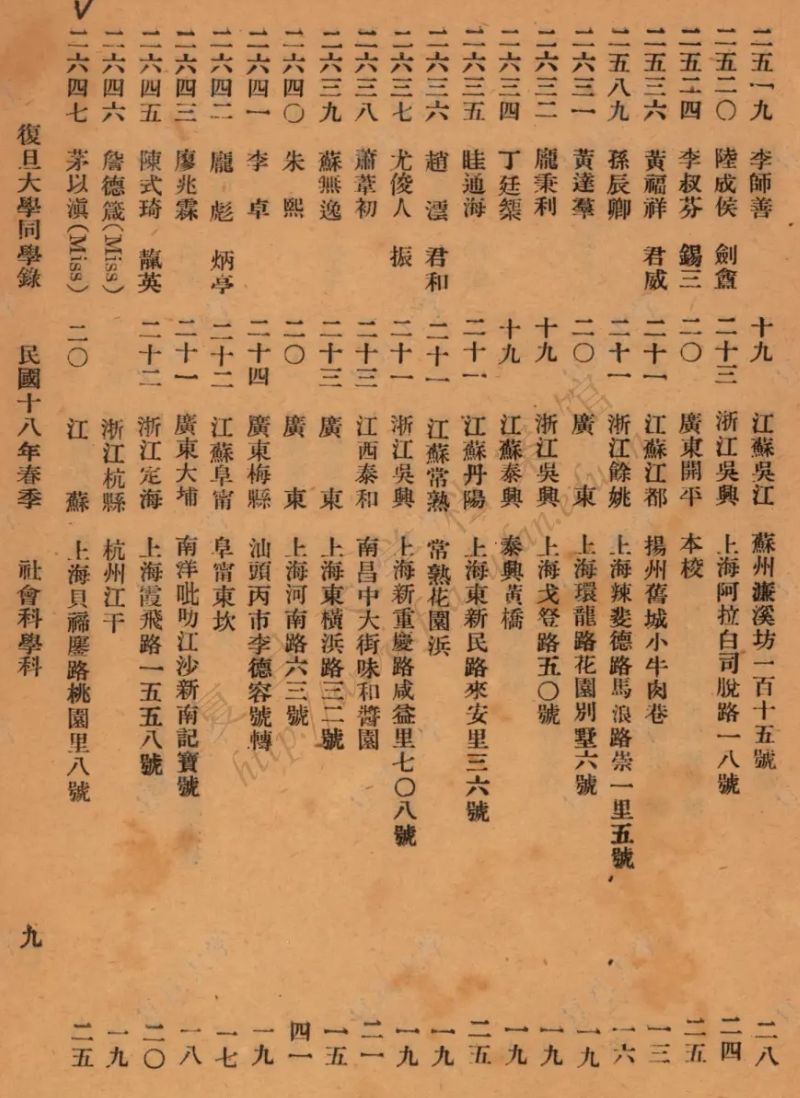 二五一九 李師善 十九 江蘇吳江 蘇州濂溪坊一百十五號 二八
二五二〇 陸成侯 劍盦 二十三 浙江吳興 上海阿拉白司脫路一八號 二四
二五二四 李叔芬 錫三 二〇 廣東開平 本校 二五
二五三六 黃福祥 君威 二十一 江蘇江都 揚州舊城小牛肉巷 一三
二五八九 孫辰卿 二十一 浙江餘姚 上海辣斐德路馬浪路崇一里五號 一六
二六三一 黃達羣 二〇 廣東 上海環龍路花園別墅六號 一九
二六三二 龐秉利 十九 浙江吳興 上海戈登路五〇號 一九
二六三四 丁廷榘 十九 江蘇泰興 泰興黃橋 一九
二六三五 眭通海 二十一 江蘇丹陽 上海東新民路來安里三六號 二五
二六三六 趙澐 君和 二十一 江蘇常熟 常熟花園浜 一九
二六三七 尤俊人 振 二十一 浙江吳興 上海新重慶路咸益里七〇八號 一九
二六三八 蕭葦初 二十三 江西泰和 南昌中大街味和醬園 二一
二六三九 蘇無逸 二十三 廣東 上海東橫浜路三二號 一五
二六四〇 朱熙 二〇 廣東 上海河南路六三號 四一
二六四一 李卓 二十四 廣東梅縣 汕頭丙市李德容號轉 一九
二六四二 龐彪 炳亭 二十二 江蘇阜甯 阜甯東坎 一七
二六四三 廖兆霖 二十一 廣東大埔 南洋吡叻江沙新南記寶號 一八
二六四五 陳式琦 龍英 二十二 浙江定海 上海霞飛路一五五八號 二〇
二六四六 詹德箴(Miss) 浙江杭縣 杭州江干 一九
二六四七 茅以滇(Miss) 二〇 江蘇 上海貝禘鏖路桃園里八號 二五
復旦大學同學錄 民國十八年春季 社會科學科 九